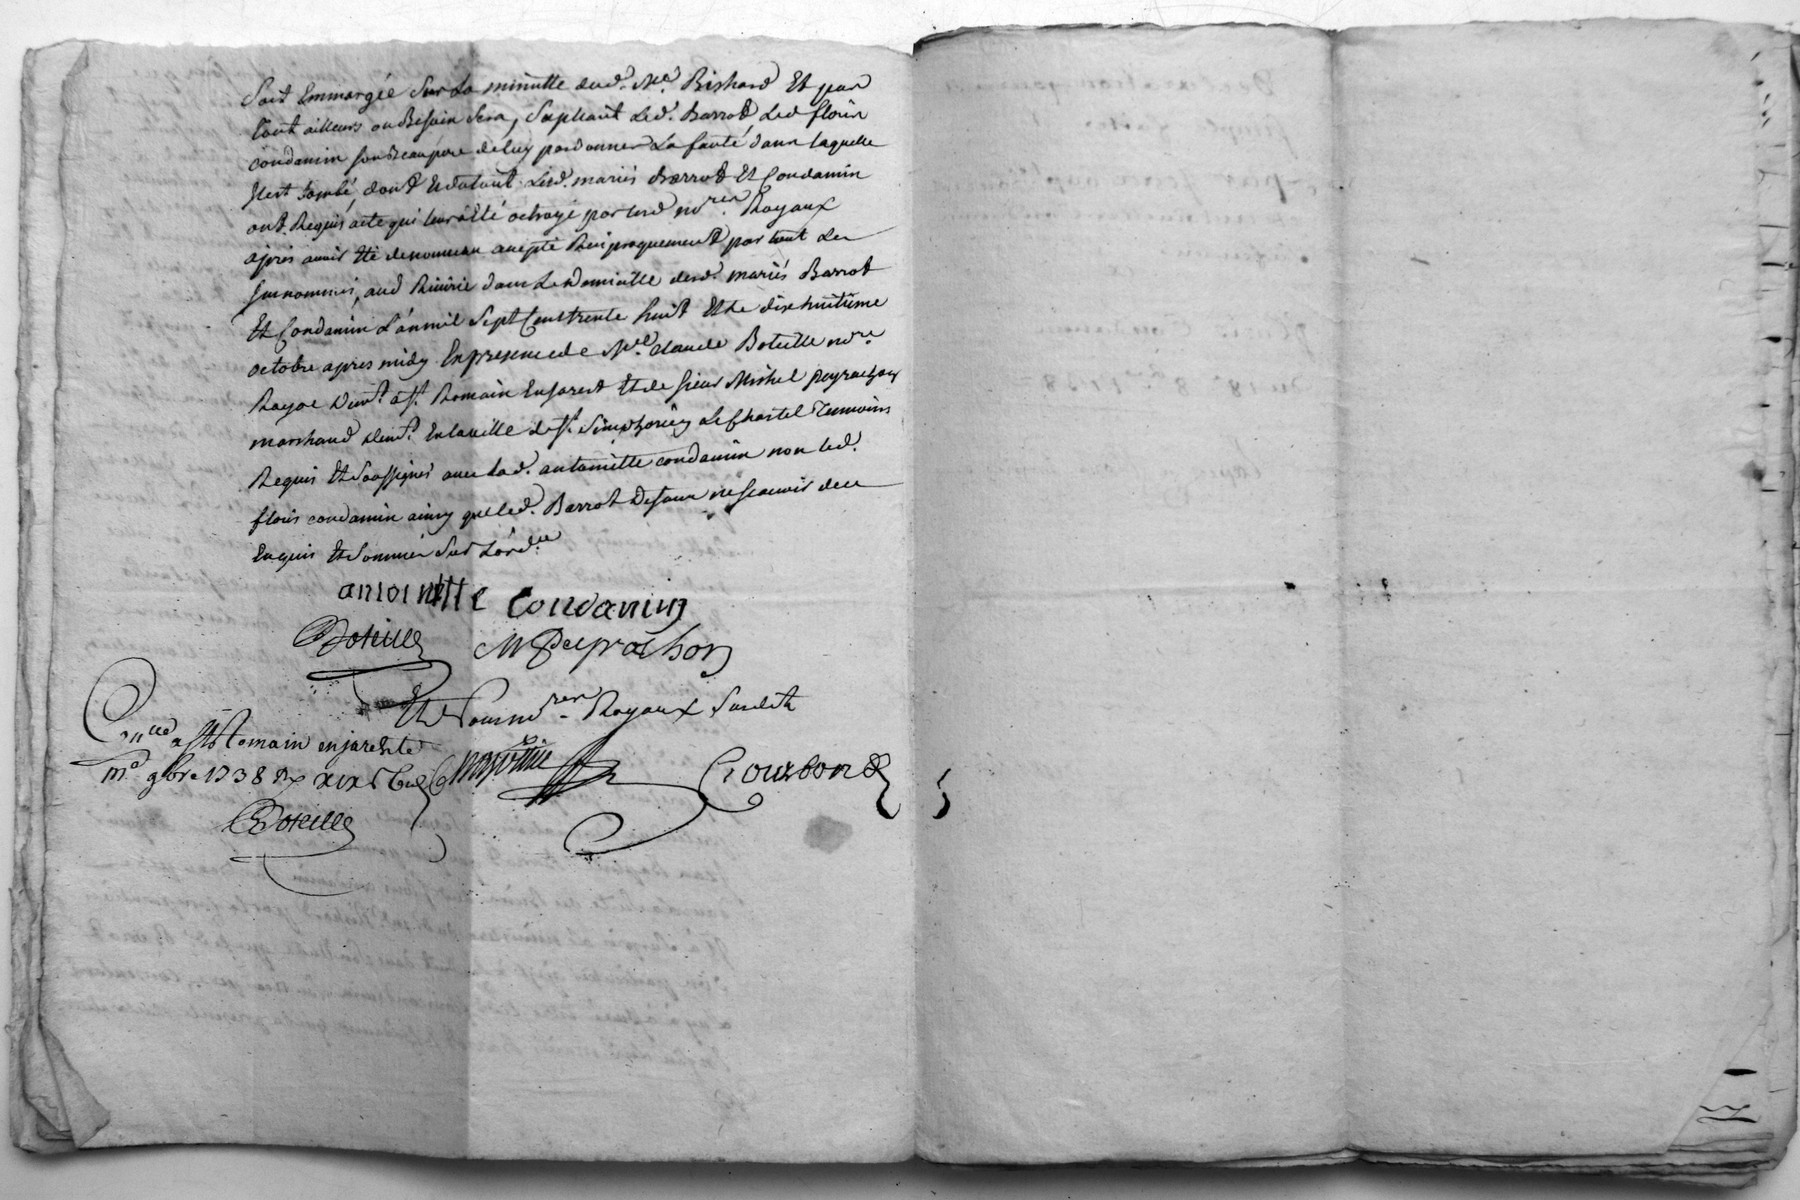 Soit Emmargée Sur La minutte dud. Me. Bishard Et par
tout ailleurs ou Besoin Sera, Supliant Led. Barrot Led flóùr
condamin son Beaupere de luy pardonner La fauté dans laquelle
Il est tombé, dont Lesd. mariés Barrot Et Condamin
ont Requis acte qui leur à été octroyé par lesd nores. Royaux
après avoir été de nouveau accepté Reciproquement par tout Les
surnommés, aud dans Le Domicille desd. mariés Barrot
Et Condamin L'an mil Sept Cens trente huit Et le dixhuitième
octobre apres midy En presence de Me. Claude Boteille nore.
Royal Demt. à St. Romain En Jarest Et de sieur Michel peyrachon
marchand demt. En la ville de St. Simphorien Le Chastel Temoins
Requis Et Soussignés avec lad. antoinette condamin non led.
flóris condamin ainsy que led. Barrot De sçavoir de ce
Enquis Et Sommés Sur L'ord.ce
antoinette Condamin
Boteille M Peyrachon
Et Nous nores. Royaux Susdits
Con.llé a St Romain en jareste
9bre 1738
Gourbon
Boteille